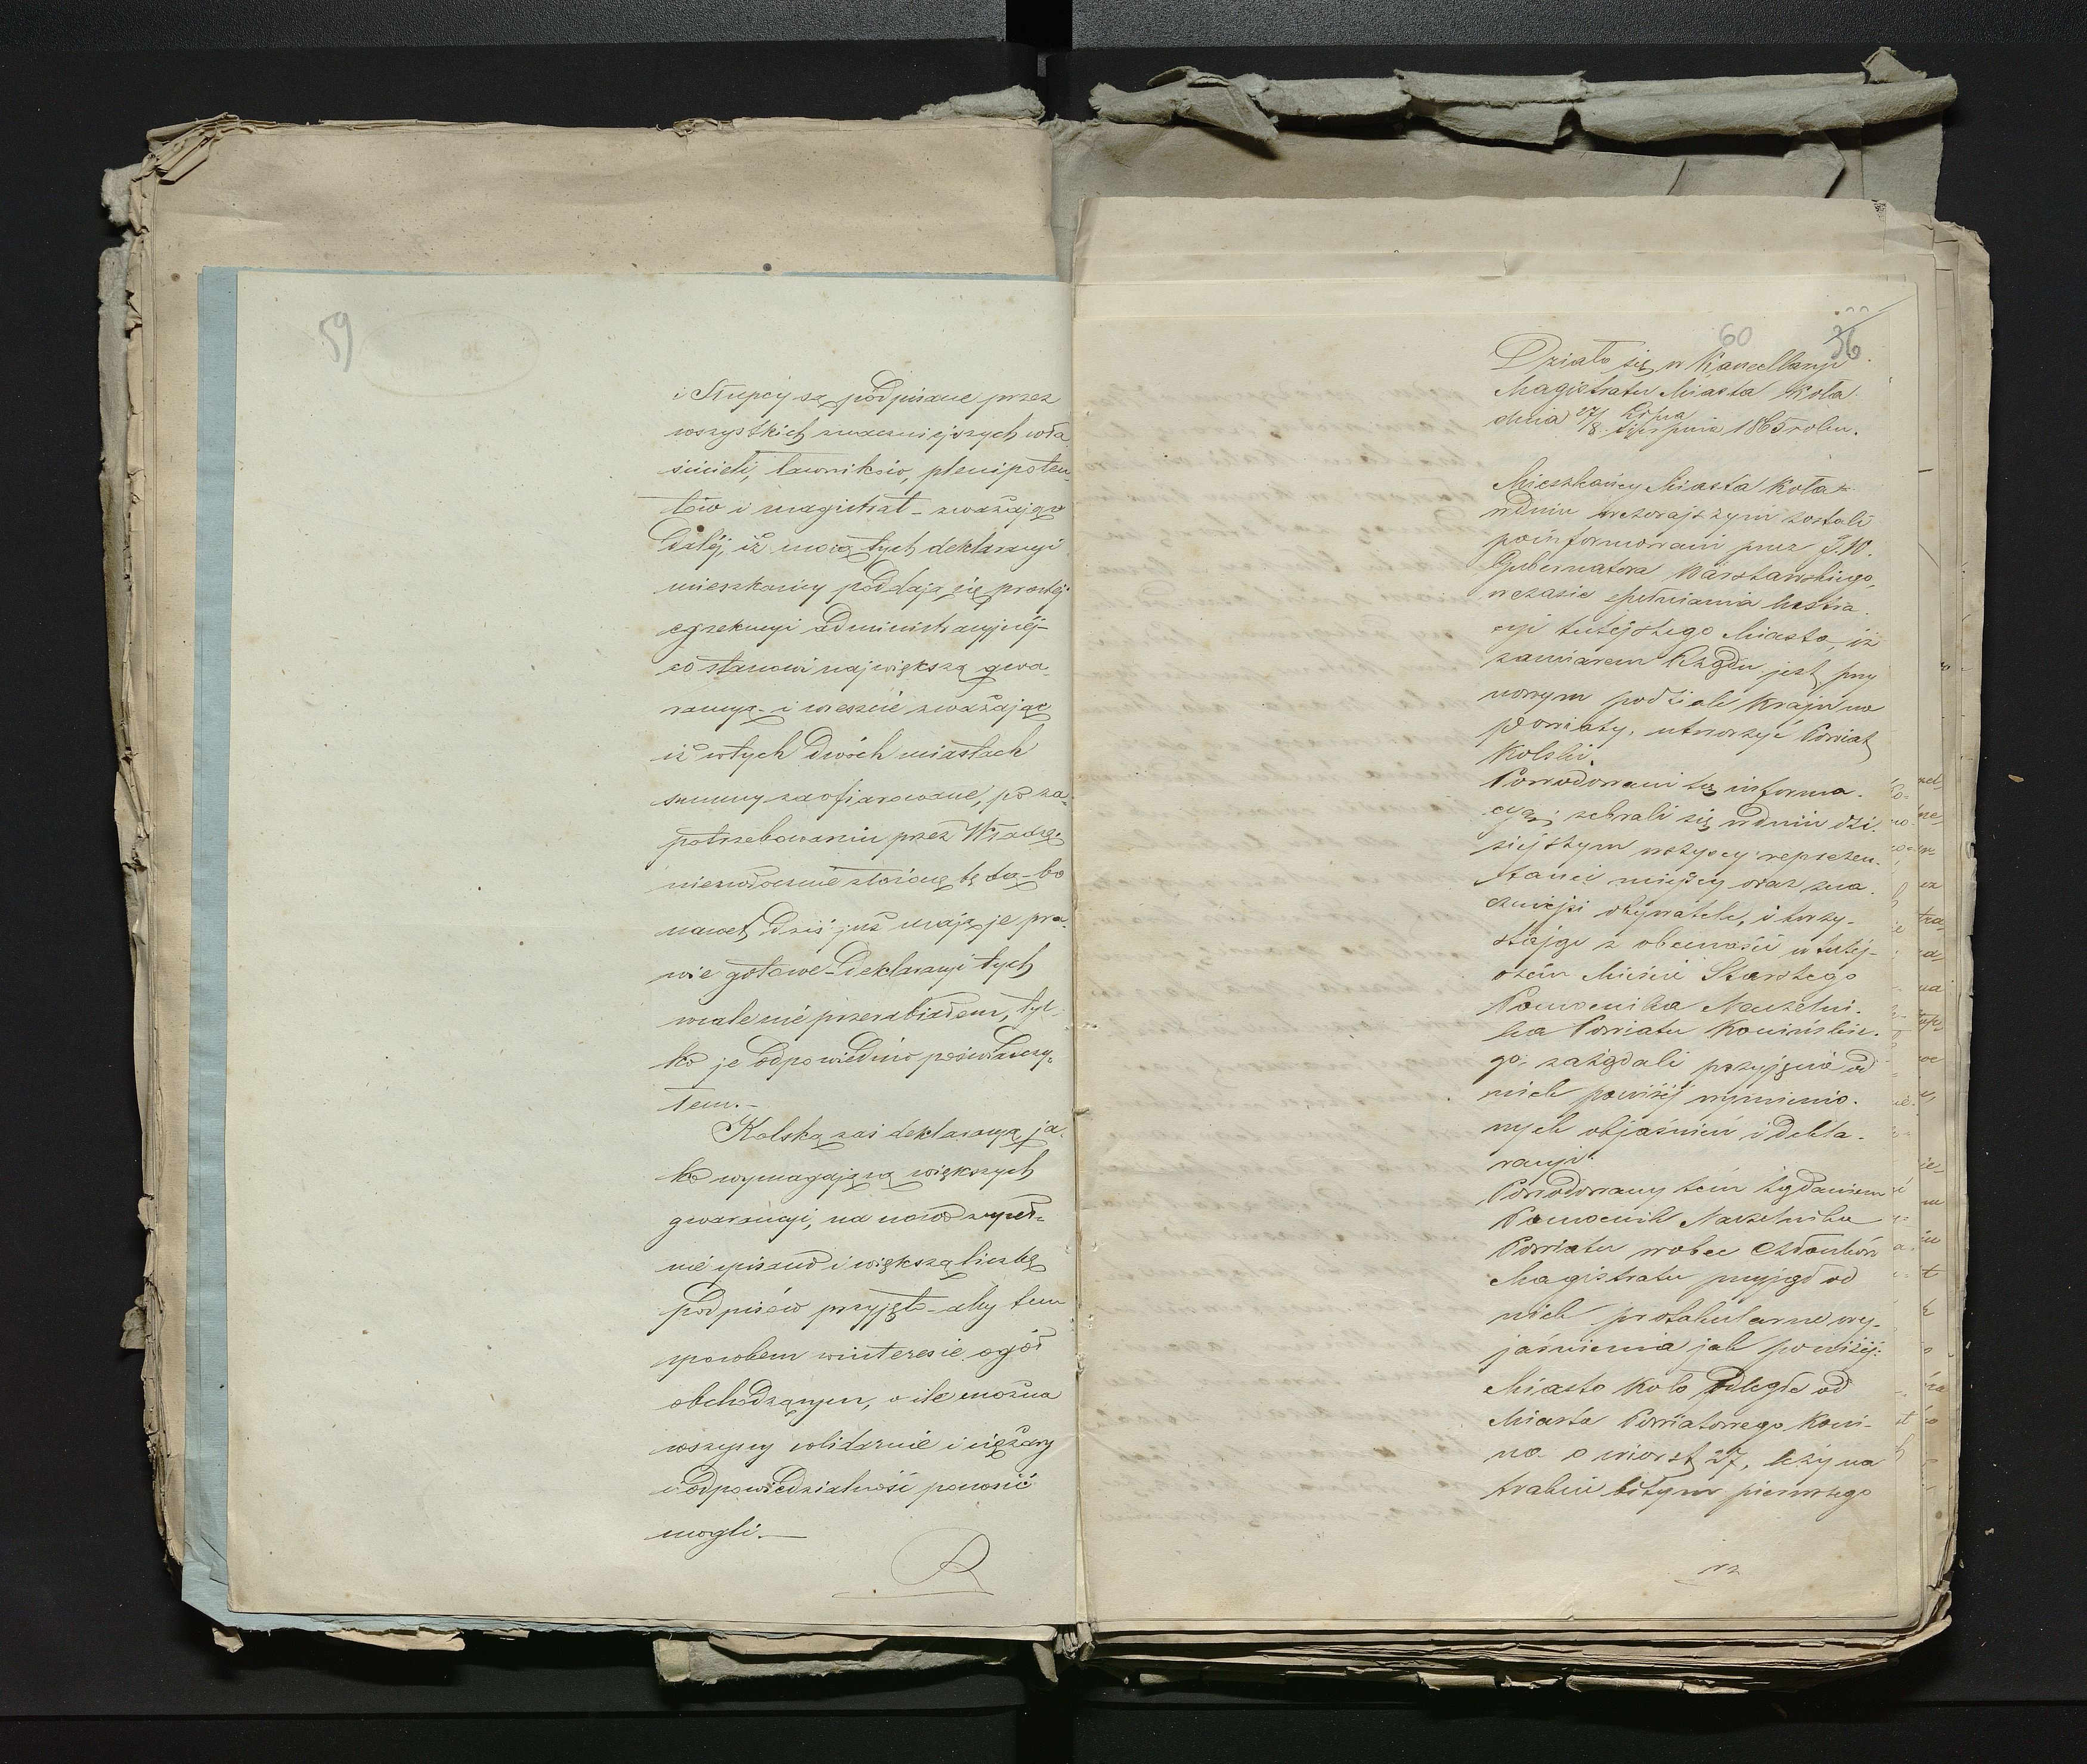 59
i Słupcy są podpisane przez
wszystkich znaczniejszych wła
ścicieli, ławników, plenipoten-
tów i magistrat – zważając
dalej, iż mocą tych deklaracyi
mieszkańcy poddają się prostej
egzekucyi administracyjnéj –
co stanowi największą gwa-
rancyą – i wreszcie zważając
iż w tych dwóch miastach
summy zaofiarowane, po za-
potrzebowaniu przez Władzę
niezwłocznie złożone będą – bo
nawet dziś już mają je pra-
wie gotowe – Deklaracyi tych
wcale nie przerabiałem, tyl-
ko je odpowiednio poświadczy-
łem. –
Kolską zaś deklaracyą, ja-
ko wymagającą większych
gwarancyi, na nowo zupeł-
nie spisano i większą liczbę
podpisów przyjęto – aby tem
sposobem w interesie ogół
obchodzącym, o ile można
wszyscy solidarnie i ciężary
i odpowiedzialność ponosić
mogli. —
60
36
Działo się w Kancellaryi
Magistratu Miasta Koła
dnia 27/8 Lipca/Sierpnia 1865 roku.
Mieszkańcy Miasta Koła
w dniu wczorajszym zostali
poinformowani przez J.W.
Gubernatora Warszawskiego,
w czasie spełniania lustra-
cyi tutejszego Miasta, iż
zamiarem Rządu jest przy
nowym podziale Kraju na
powiaty, utworzyć Powiat
Kolski.
Powodowani tą informa-
cyą, zebrali się w dniu dzi-
siejszym wszyscy reprezen-
tanci miejscy oraz zna-
czniejsi obywatele, i korzy-
stając z obecności w tutej-
szém Mieście Starszego
Pomocnika Naczelni-
ka Powiatu Konińskie-
go, zażądali przyjęcia od
nich poniżéj wymienio-
nych objaśnień i dekla-
racyi.
Powodowany tém żądaniem
Pomocnik Naczelnika
Powiatu wobec Członków
Magistratu przyjął od
nich protokularne wy-
jaśnienia jak poniżéj:
Miasto Koło odległe od
Miasta Powiatowego Koni-
na o wiorst 27, leży na
trakcie bitym pierwszego